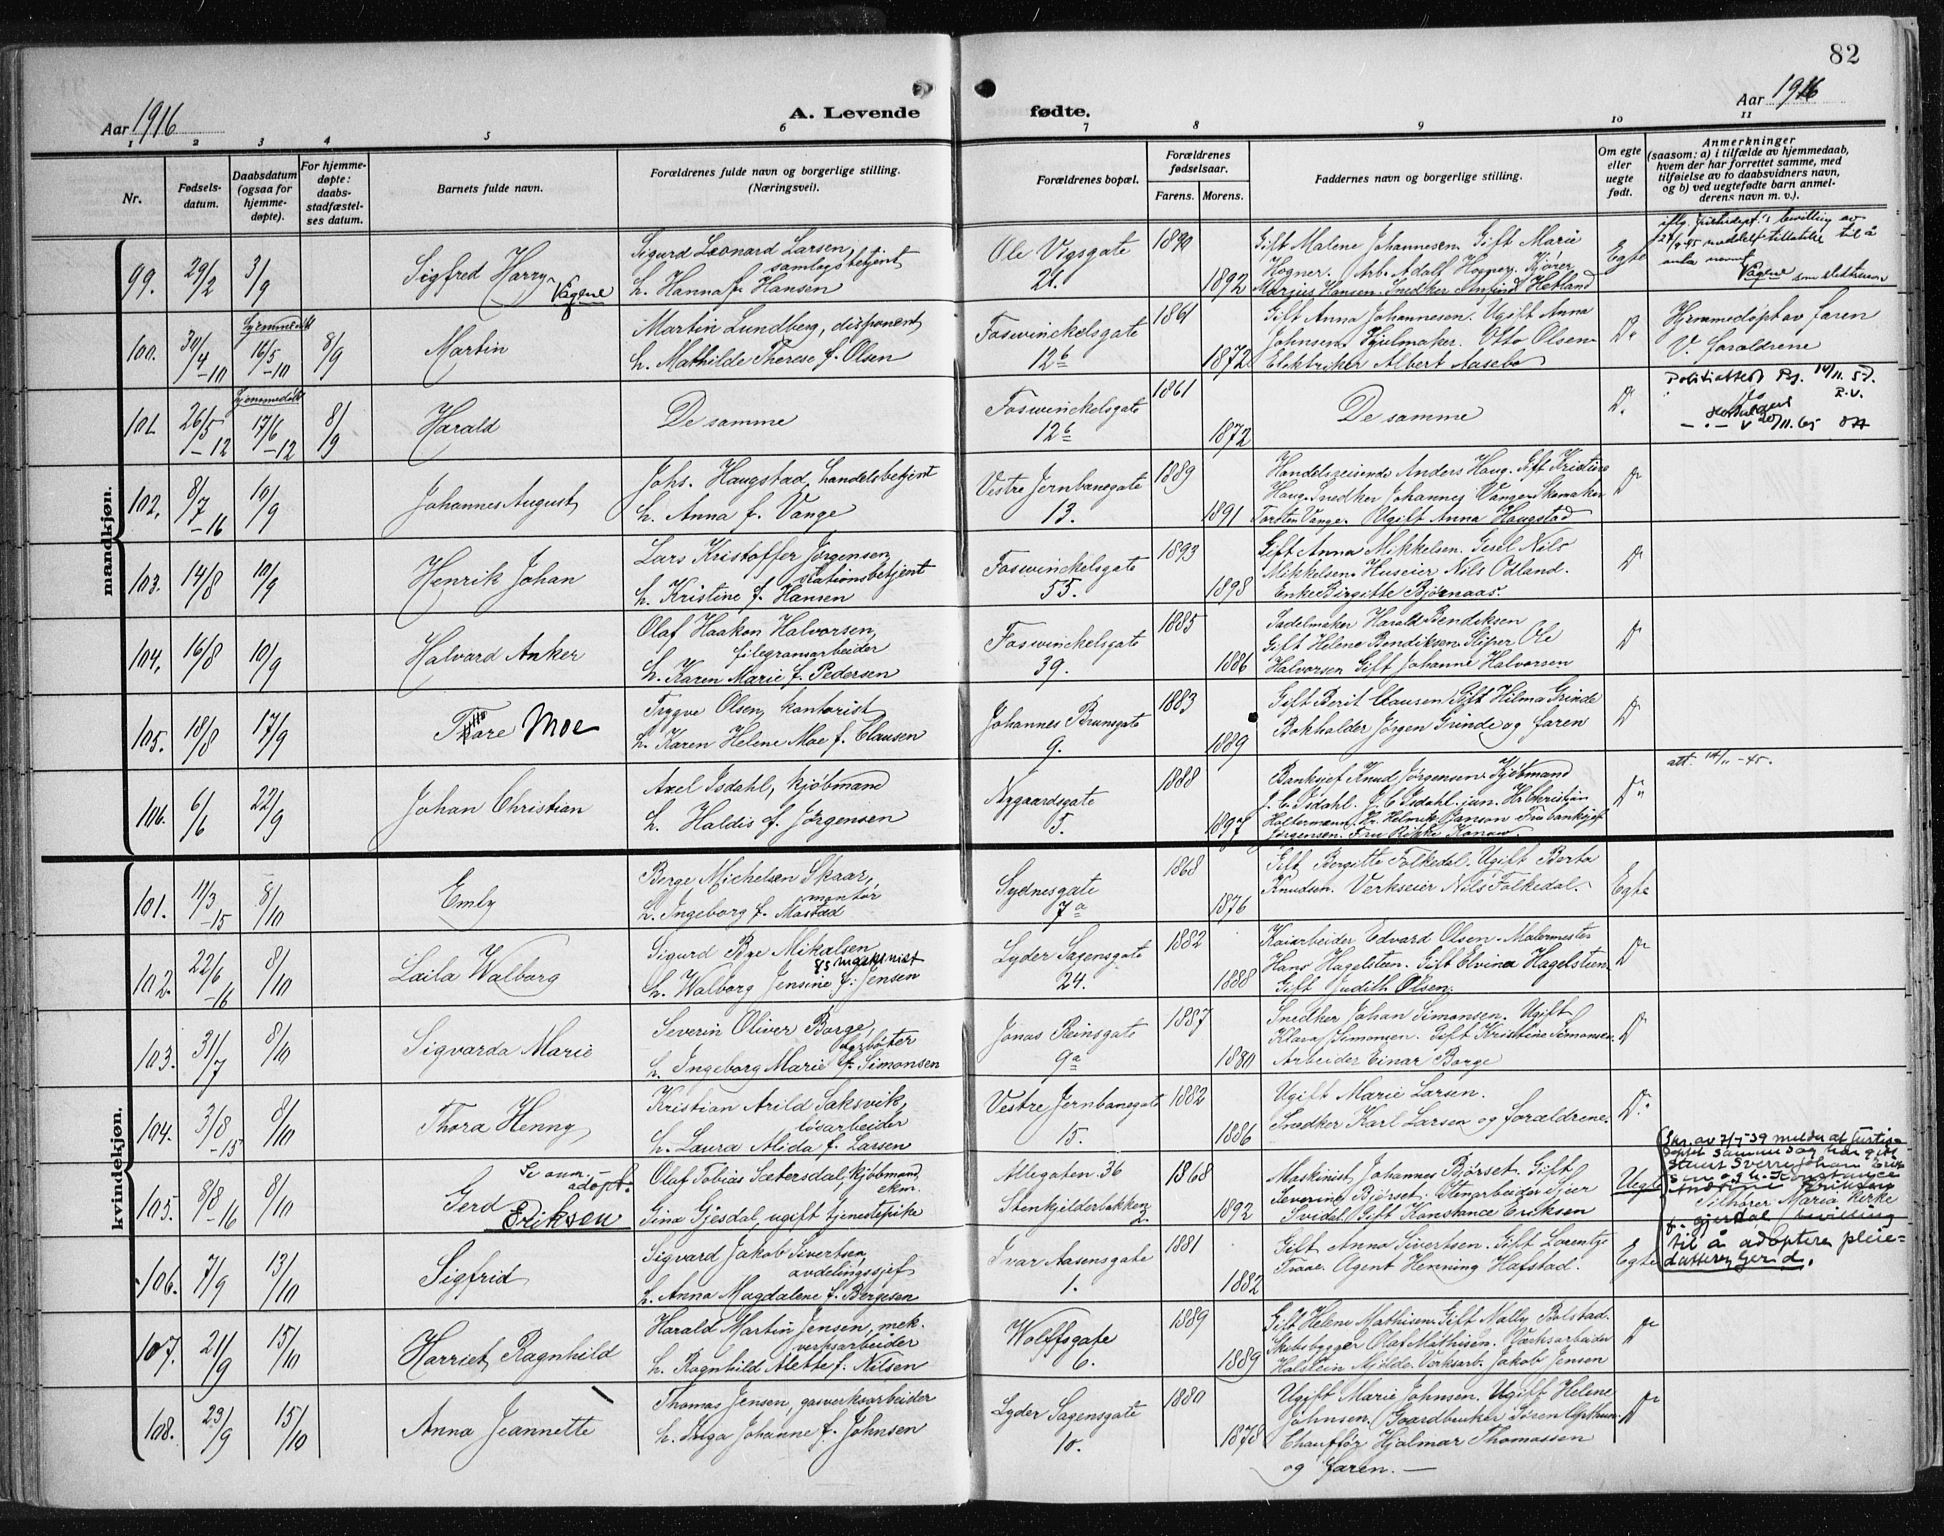 82
Aar 1916
A. Levende fødte.
Aar 1916
1 2 3 4 5 6 7 8 9 10 11
Nr.
Fødsels-
datum.
Daabsdatum
(ogsaa for
hjemme-
døpte).
For hjemme-
døpte:
daabs-
stadfæstel-
ses datum.
Barnets fulde navn.
Forældrenes fulde navn og borgerlige stilling.
(Næringsvei).
Forældrenes bopæl.
Forældrenes
fødselsaar.
Farens. Morens.
Faddernes navn og borgerlige stilling.
Om egte
eller
uegte
født.
Anmerkninger
(saasom: a) i tilfælde av hjemmedaab,
hvem der har forrettet samme, med
tilføielse av to daabsvidners navn,
og b) ved uegtefødte barn anmel-
derens navn m. v.).
mandkjøn.
99. 29/2 3/9 Sigfred Harry Vagene
Sigurd Leonard Larsen,
samlagsbetjent
h. Hanna f. Hansen
Ole Vigsgate
21.
1890 1892
Gift Malene Johannesen. Gift Marie
Hogner. Arb. Adolf Hogner. Kjører
Marius Hansen. Snedker Hetland
Egte
Vagene som slektsnavn
100. 30/4-10 Hjemmedøbt 16/5-10 8/9 Martin
Martin Lundberg, disponent
h. Mathilde Therese f. Olsen
Foswinckelsgate
12b
1861 1872
Gift Anna Johannesen. Ugift Anna
Johnsen. Hjulmaker Otto Olsen
Elektriker Albert Aasebø
Do
Hjemmedøpt av faren
V. forældrene
101. 26/5-12 Hjemmedøbt 17/6-12 8/9 Harald
De samme
Foswinckelsgate
12b
1861 1872
De samme
Do
Politiattest
102. 8/7-16 10/9 Johannes August
Johs. Haugstad, handelsbetjent
h. Anna f. Vange
Vestre Jernbanegate
13.
1889 1891
Handelsreisende Anders Haug. Gift Kristine
Haug. Snedker Johannes Vange. Skomaker
Torsten Vange. Ugift Anna Haugstad
Do
103. 14/8 10/9 Henrik Johan
Lars Kristoffer Jørgensen,
stationsbetjent
h. Kristine f. Hansen
Foswinckelsgate
55.
1893 1898
Gift Anna Mikkelsen. Gesel Nils
Mikkelsen. Huseier Nils Odland.
Enke Birgitte Bjørnaas.
Do
104. 16/8 10/9 Halvard Anker
Olaf Haakon Halvorsen,
filegransarbeider
h. Karen Marie f. Pedersen
Foswinckelsgate
39.
1885 1886
Sadelmaker Harald Bendiksen
Gift Helene Bendiksen. Ole
Halvorsen Gift Johanne Halvorsen
Do
105. 18/8 17/9 Tore Moe
Trygve Olsen, kontorist
h. Karen Helene Moe f. Clausen
Johannes Brunsgate
9.
1883 1889
Gift Berit Clausen. Gift Hilma Grinde
Bokholder Jørgen Grinde og faren
Do
106. 6/6 22/9 Johan Christian
Axel Isdahl, kjøbmand
h. Haldis f. Jørgensen
Nygaardsgate
5.
1888 1897
Banksjef Knud Jørgensen. Kjøbmand
J. C. Isdahl. J. C. Isdahl jun. Hr. Christian
Holtermann. Hr. Henrik Janson Fru banksjef
Jørgensen. Fru Kanaw
Do
att. 14/11-45.
kvindekjøn.
101. 11/3-15 8/10 Emly
Berge Michelsen Skaar,
montør
h. Ingeborg f. Mostad
Sydnesgate
7a
1868 1876
Gift Bergitte Folkedal. Ugift Berta
Knudsen. Verkseier Nils Folkedal.
Egte
102. 22/6-16 8/10 Laila Walborg
Sigurd Bye Mikalsen
maskinist
h. Walborg Jensine f. Jensen
Lyder Sagensgate
24.
1882 1888
Kaiarbeider Edvard Olsen. Malermester
Hans Hagelsteen. Gift Elvina Hagelstien
Gift Judith Olsen.
Do
103. 31/7 8/10 Sigvarda Marie
Severin Oliver Borge,
fyrbøter
h. Ingeborg Marie f. Simonsen
Jonas Reinsgate
9a
1887 1880
Snedker Johan Simonsen. Ugift
Klara Simonsen. Gift Kristine Simonsen.
Arbeider Einar Borge
Do
104. 3/8-15 8/10 Thora Henny
Kristian Arild Saksvik,
løsarbeider
h. Laura Alida f. Larsen
Vestre Jernbanegate
15.
1882 1886
Ugift Marie Larsen.
Snedker Karl Larsen og forældrene.
Do
105. 8/8-16 8/10 Gerd Eriksen
Se anm. - adopt.
Olaf Tobias Sætersdal, kjøbmand,
ekm.
Gina Gjesdal, ugift tjenestepike
Allegaten 36
Stenkjelderbakken
2.
1868 1892
Maskinist Johannes Bjørset. Gift
Severine Bjørset. Stenarbeider Sjur
Svidal. Gift Konstance Eriksen
Uegte
til å adoptere pleie-
datteren Gerd.
106. 7/9 13/10 Sigfrid
Sigvard Jakob Sivertsen,
avdelingssjef
h. Anna Magdalene f. Bergesen
Ivar Aasensgate
1.
1881 1882
Gift Anna Sivertsen. Gift Lorentze
Traae. Agent Henning Hafstad.
Egte
107. 21/9 15/10 Harriet Ragnhild
Harald Martin Jensen, mek.
verksarbeider
h. Ragnhild Alette f. Nilsen
Wolffsgate
6.
1889 1889
Gift Helene Mathisen. Gift Molly Bolstad.
Skibsbygger Olaf Mathisen. Verksarbeider
Halstein Mjelde. Verksarb. Jakob Jensen
Do
108. 23/9 15/10 Anna Jeannette
Thomas Jensen, gasverksarbeider
h. Inga Johanne f. Johnsen
Lyder Sagensgate
10.
1880 1878
Ugift Marie Johnsen. Ugift Helene
Johnsen. Gaardbruker Søren
Chauffør Hjalmar Thomassen
og faren. —
Do